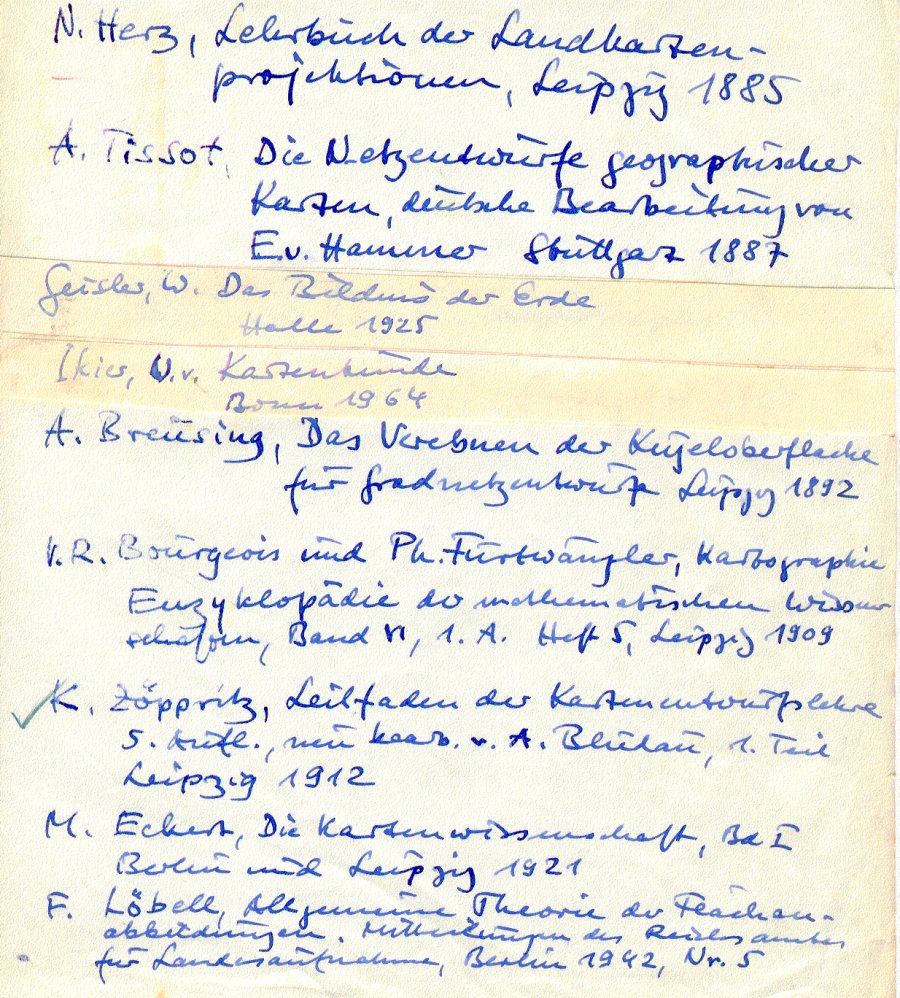 N. Herz, Lehrbuch der Landkarten-
projektionen, Leipzig 1885
A. Tissot, Die Netzentwürfe geographischer
Karten, deutsche Bearbeitung von
E. v. Hammer Stuttgart 1887
Geisler, W. Das Bildnis der Erde
Halle 1925
V. v. Kartenkunde
Bonn 1964
A. Breusing, Das Verebnen der Kugeloberfläche
für Gradnetzentwürfe Leipzig 1892
R. Bourgeois und Ph. Furtwängler, Kartographie
Enzyklopädie der mathematischen Wissen
schaften, Band VI, 1. A. Heft 5, Leipzig 1909
K. Zöppritz, Leitfaden der Kartenentwurfslehre
5. Aufl., neu bearb. v. A. Bludau, 1. Teil
Leipzig 1912
M. Eckert, Die Kartenwissenschaft, Bd I
Berlin und Leipzig 1921
F. Löbell, Allgemeine Theorie der Flächen-
abbildungen. Mitteilungen des Reichsamtes
für Landesaufnahme, Berlin 1942, Nr. 5